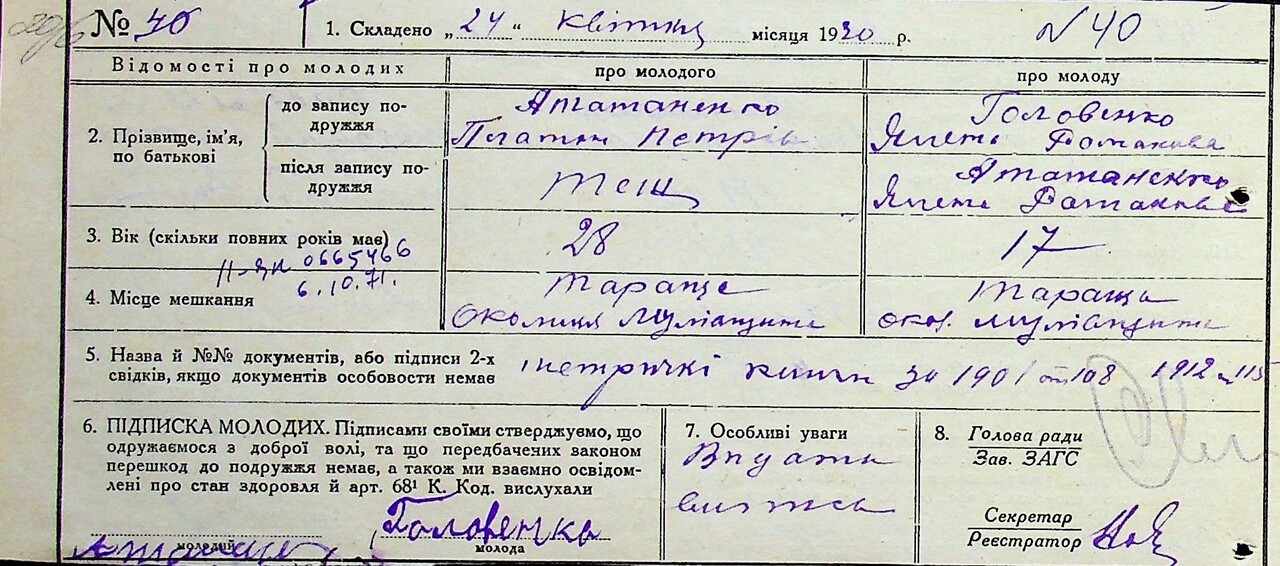 № 40
1. Складено „24“ квітня місяця 1930 р.
N 40
Відомості про молодих
про молодого
про молоду
2. Прізвище, ім'я, по батькові
до запису по-
дружжя
Атаманенко
Платон Петрів
Головенко
Романова
після запису по-
дружжя
Атаманенко
Романова
3. Вік (скільки повних років має)
28
17
0665466
6.10.71.
4. Місце мешкання
Тараща
Околиця
Тараща
окол.
5. Назва й №№ документів, або підписи 2-х
свідків, якщо документів особовости немає
метричні книги за 1901 108 1912 115
6. ПІДПИСКА МОЛОДИХ. Підписами своїми стверджуємо, що
одружаємося з доброї волі, та що передбачених законом
перешкод до подружжя немає, а також ми взаємно освідом-
лені про стан здоровля й арт. 68¹ К. Код. вислухали
Головенко
молодий
молода
7. Особливі уваги
8. Голова ради
Зав. ЗАГС
Секретар
Реєстратор